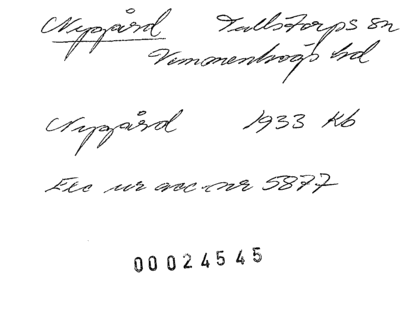 Nygård Tullstorps sn
Vemmenhögs hd
Nygård 1933 Kb
Exc ur acc-nr 5877
00024545